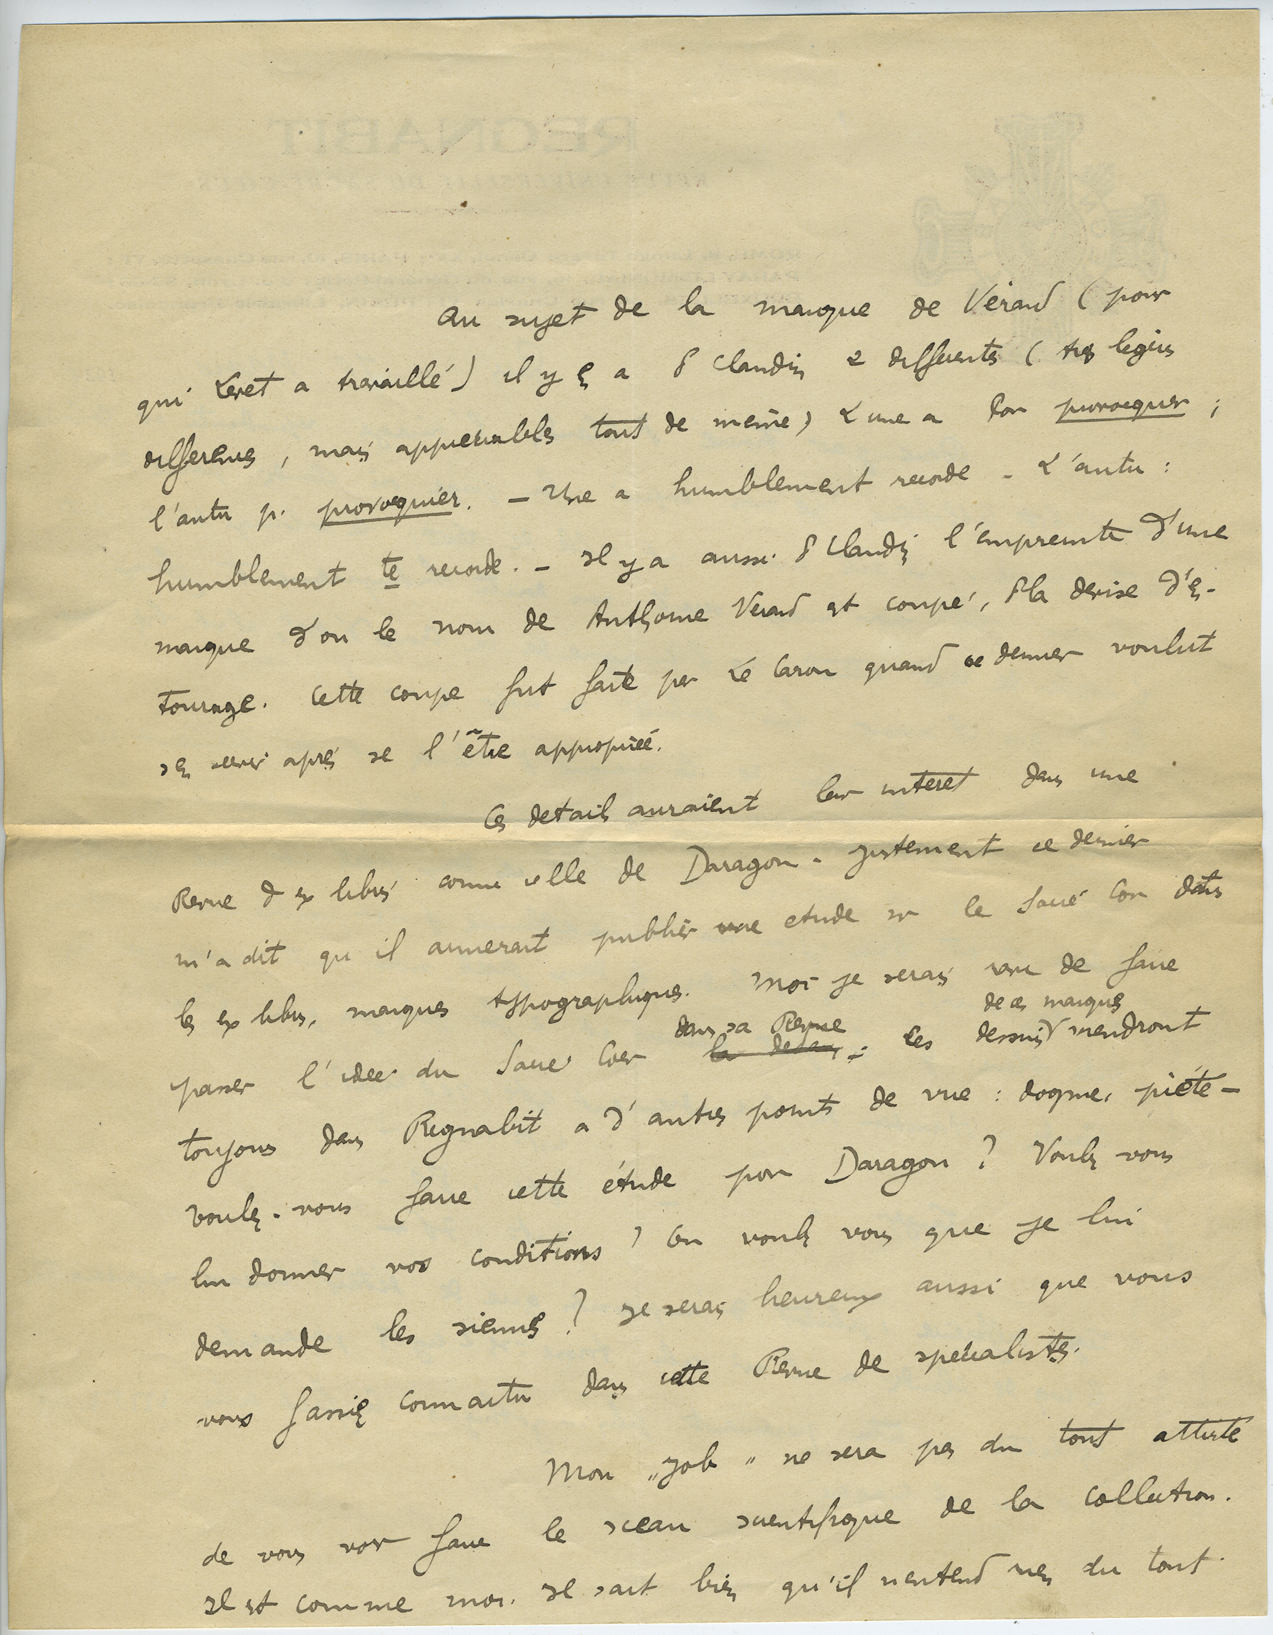 REGNABIT
REVUE UNIVERSELLE DU SACRÉ-CŒUR
Au sujet de la marque de Vérard (pour
qui a travaillé) il y a Claudin 2 differents (
differences, mais appreciables tout de même) L'une a provocquer ;
l'autre p. provocquier. – Une a humblement recorde – L'autre :
humblement te recorde. – Il y a aussi Claudin l'empreinte d'une
marque d'ou le nom de Anthoine Verard est coupé, la devise d'en-
tourage. Cette coupe fut faite par Le Caron quand ce dernier voulut
s'en servir après se l'être appropriée.
Ces details auraient leur interet dans une
Revue d'ex libris comme celle de Daragon. Justement ce dernier
m'a dit qu'il aimerait publier une etude sur le Sacré Cœur dans
les ex libris, marques typographiques. Moi je serais ravi de faire
passer l'idée du Sacré Cœur dans sa Revue : Les dessins de ces marques viendront
toujours dans Regnabit a d'autres points de vue : dogme, piété –
Voulez-vous faire cette étude pour Daragon ? Voulez-vous
lui donner vos conditions ? Ou voulez vous que je lui
demande les siennes ? Je serais heureux aussi que vous
vous fassiez connaitre dans cette Revue de spécialistes.
Mon „Job" ne sera pas du tout attristé
de vous voir faire le sceau scientifique de la collection.
Il est comme moi. Il sait bien qu'il n'entend rien du tout